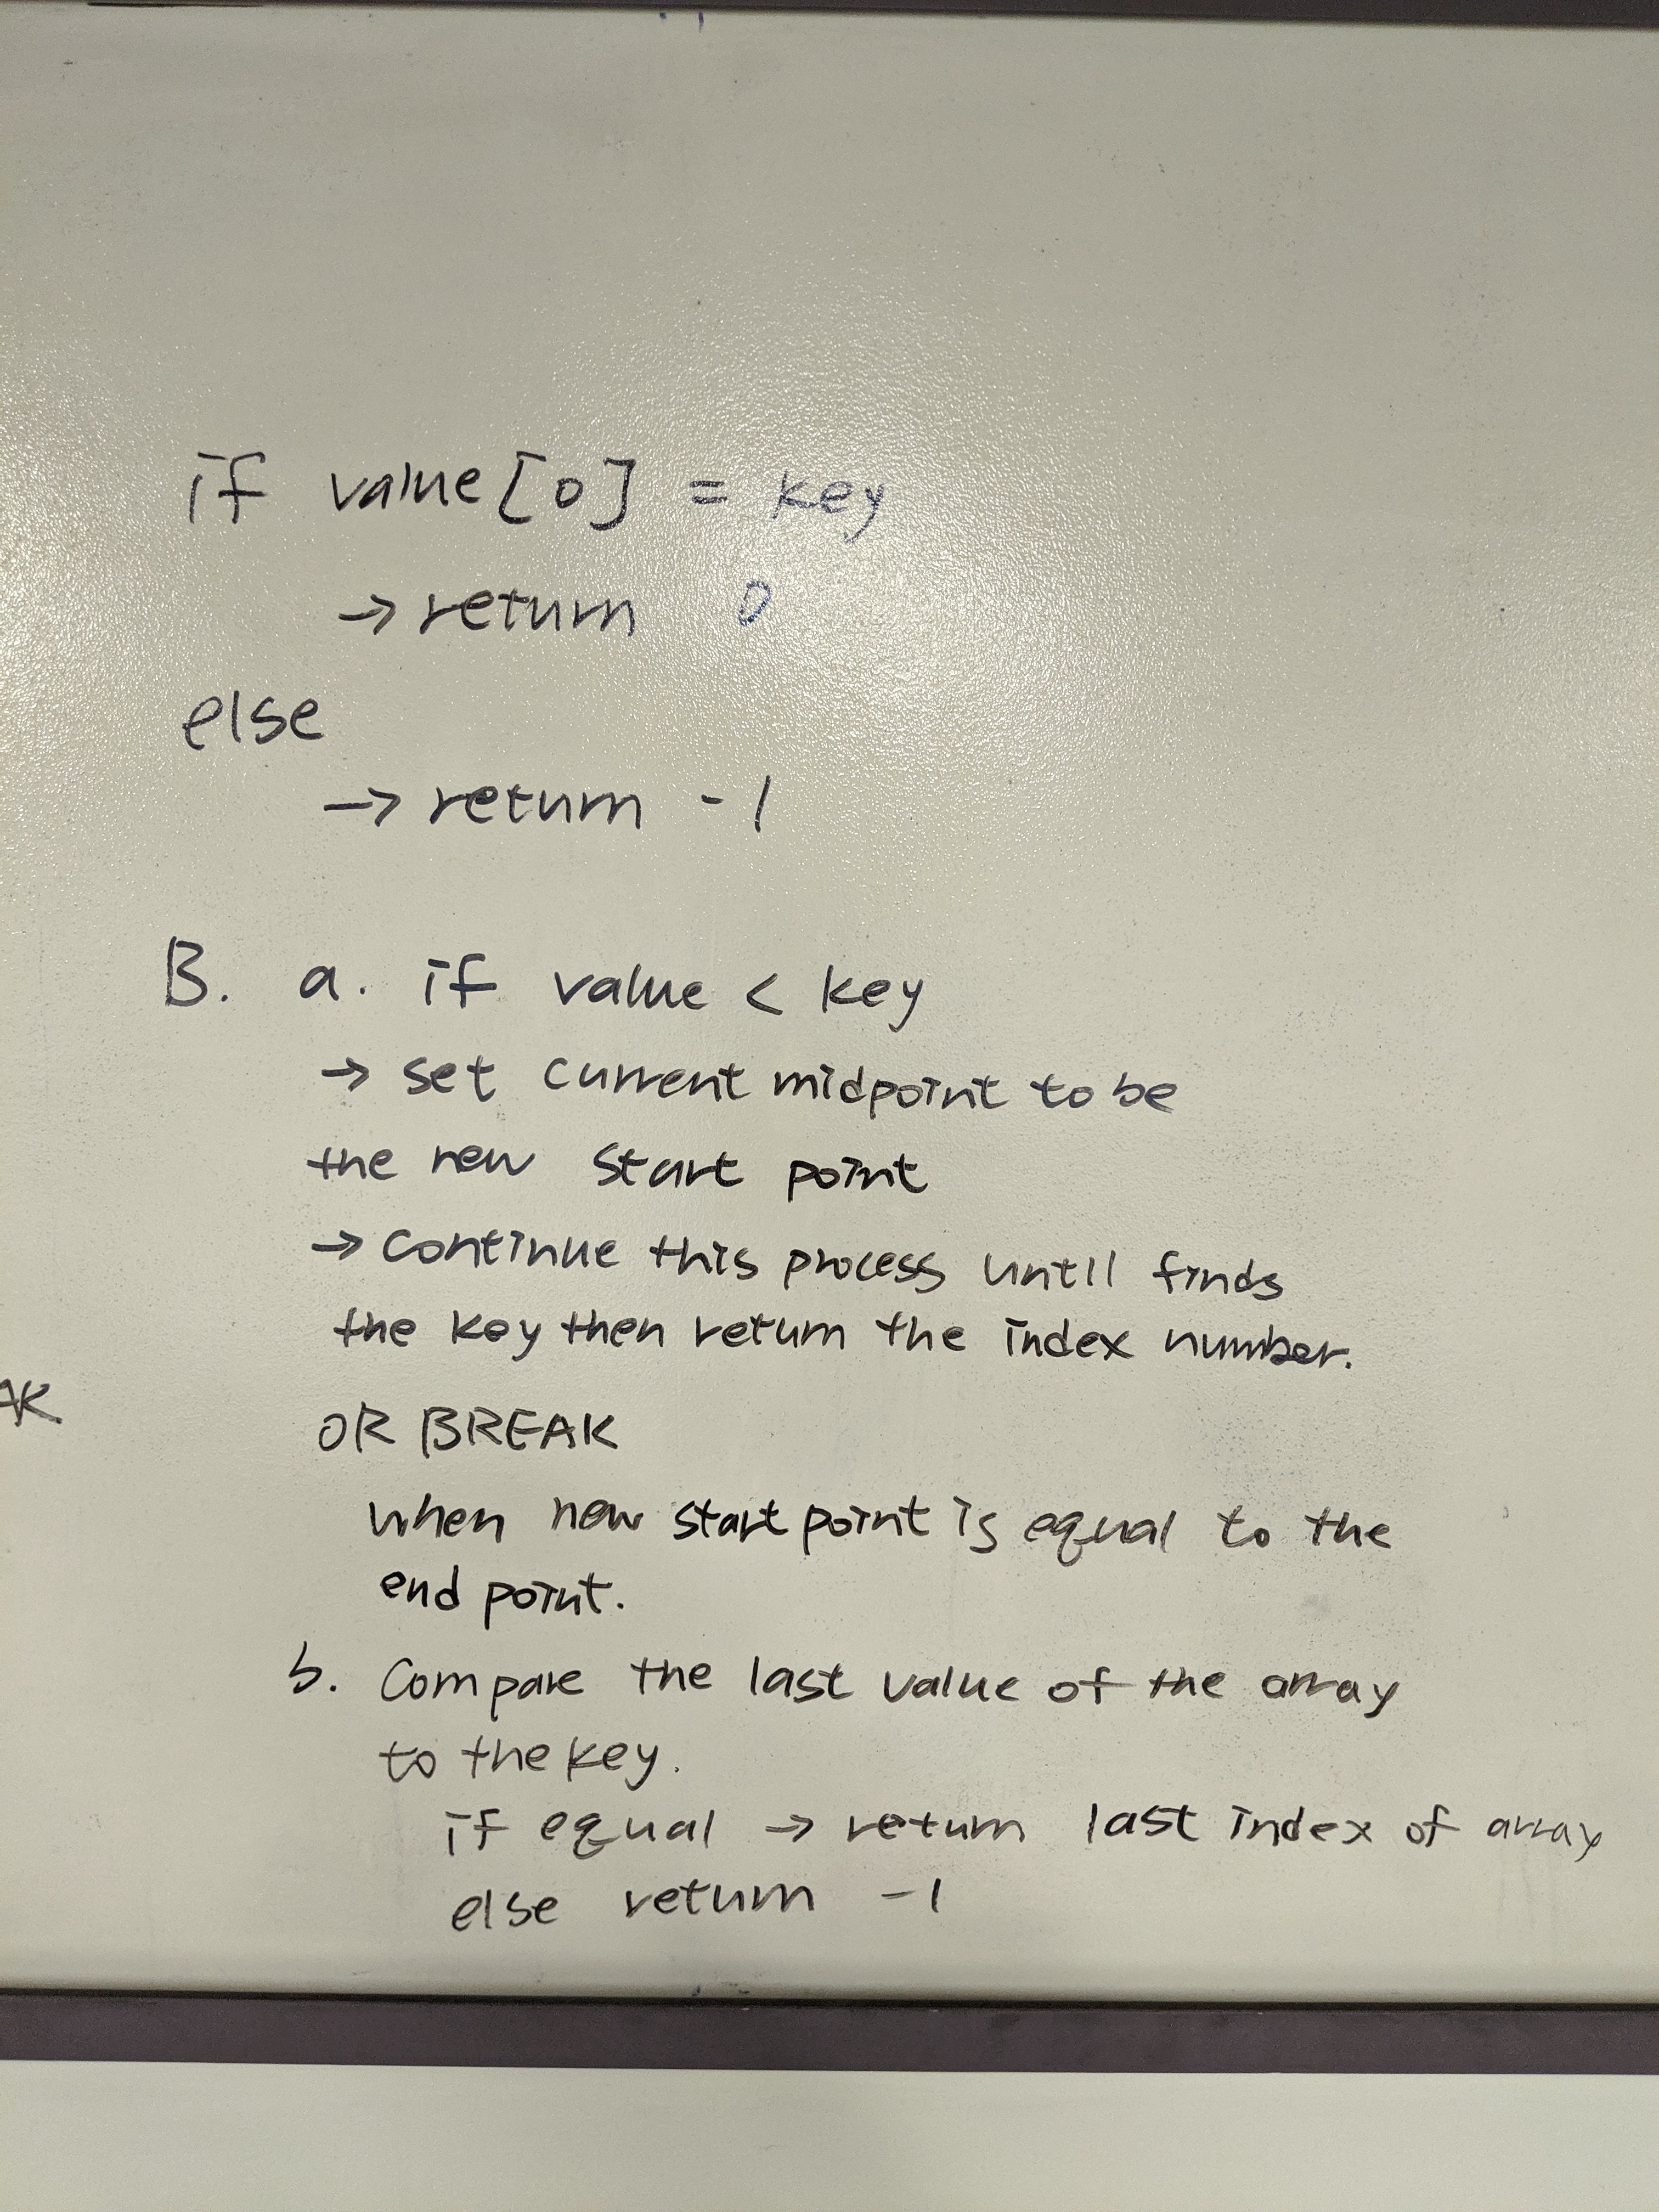 if value[0] = key
→ return 0
else
→ return -1
B. a. if value < key
→ set current midpoint to be
the new start point
→ continue this process until finds
the key then return the index number.
AK
OR BREAK
when new start point is equal to the
end point.
b. Compare the last value of the array
to the key.
if equal → return last index of array
else return -1